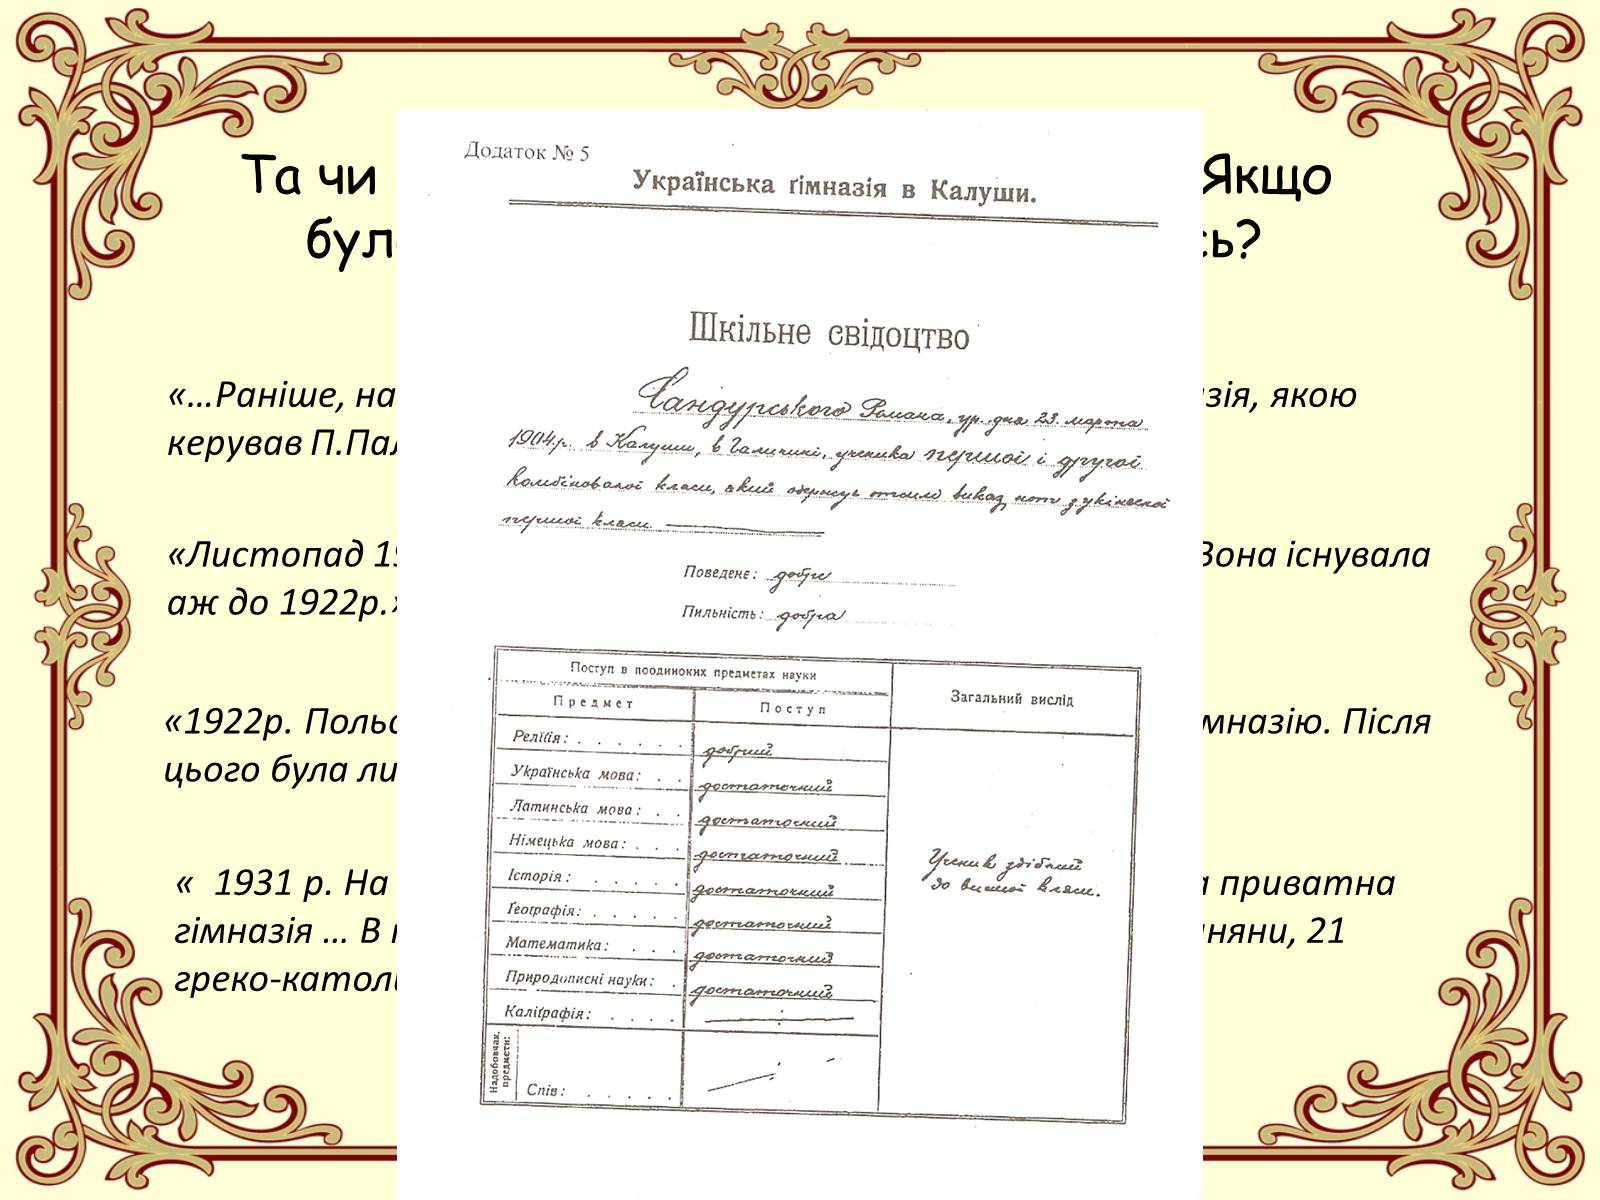 Додаток № 5
Українська ґімназія в Калуши.
Та чи Якщо
бул сь?
Шкільне свідоцтво
Сандурського Романа, ур. дня 23. марта
1904.р. в Калуши, в Галичині, ученика першої і другої
комбінованої класи, який одержує отсим виказ нот з укінченої
першої класи
«…Раніше, на зія, якою
керував П.Пал
«Листопад 19 Вона існувала
аж до 1922р.»
Поведене: добре
Пильність: добра
Поступ в поодиноких предметах науки
Загальний вислід
Предмет Поступ
Релїґія: добрий
Українська мова: достаточний
Латинська мова: достаточний
Німецька мова: достаточний
Історія: достаточний
Ґеоґрафія: достаточний
Математика: достаточний
Природописні науки: достаточний
Каліґрафія:
Надобовязк. предмети:
Спів:
Ученик здібний
до висшої класи.
«1922р. Польс мназію. Після
цього була ли
« 1931 р. На а приватна
гімназія … В няни, 21
греко-католи